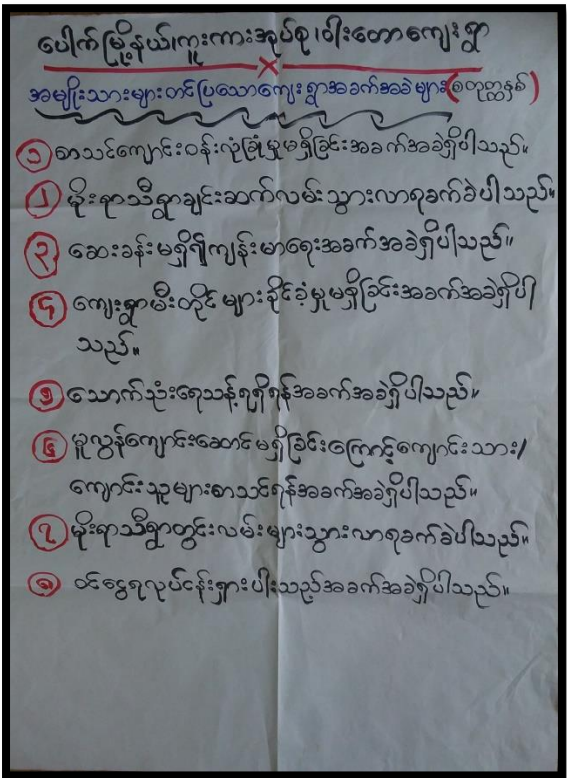 ပေါက်မြို့နယ်၊ကူးကားအုပ်စု၊ဝါးတောကျေးရွာ
အမျိုးသားများတင်ပြသောကျေးရွာအခက်အခဲများ(စတုတ္ထနှစ်)
၁ စာသင်ကျောင်းဝန်းလုံခြုံမှုမရှိခြင်းအခက်အခဲရှိပါသည်။
၂ မိုးရာသီရွာချင်းဆက်လမ်းသွားလာရခက်ခဲပါသည်။
၃ ဆေးခန်းမရှိ၍ကျန်းမာရေးအခက်အခဲရှိပါသည်။
၄ ကျေးရွာမီးတိုင်များခိုင်ခံ့မှုမရှိခြင်းအခက်အခဲရှိပါ
သည်။
၅ သောက်သုံးရေသန့်ရရှိရန်အခက်အခဲရှိပါသည်။
၆ မူလွန်ကျောင်းဆောင်မရှိခြင်းကြောင့်ကျောင်းသား/
ကျောင်းသူများစာသင်ရန်အခက်အခဲရှိပါသည်။
၇ မိုးရာသီရွာတွင်းလမ်းများသွားလာရခက်ခဲပါသည်။
၈ ဝင်ငွေရလုပ်ငန်းရှားပါးသည့်အခက်အခဲရှိပါသည်။